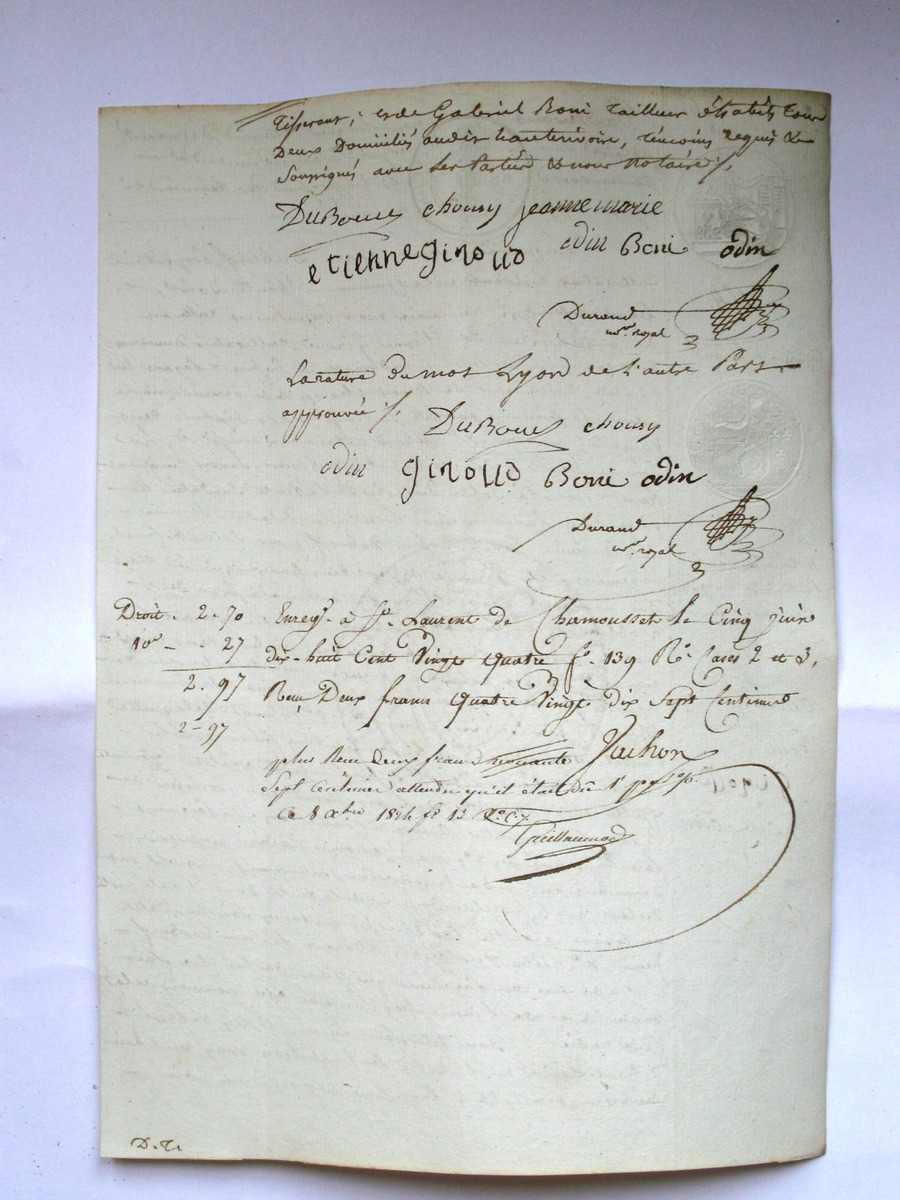 Tisserant, et de Gabriel Boni Tailleur d'habits tous
Deux Domiciliés audit hauterivoire, témoins requis &
Soussignés avec Les Parties & nous Notaire /.
DuBoueys chousy jeanne marie
etienne giroud odin Boni odin
Durand
not. royal
La rature du mot Lyon de l'autre Part
approuvée /.
DuBoueys chousy
odin giroud Boni odin
Durand
not. royal
Droit . 2 . 70
10e - . 27
2 . 97
2 - 97
Enregt. à St. Laurent de Chamousset le Cinq juin
dix-huit Cent Vingt quatre fo. 139 Ro. Cases 2 et 3,
Reçu Deux francs quatre Vingt dix Sept Centimes
Vachon
plus Reçu deux francs nonante
Sept centimes attendu qu'il était dû
Ce 8 xbre 1824 fo 13
Guillaumod
D. R.